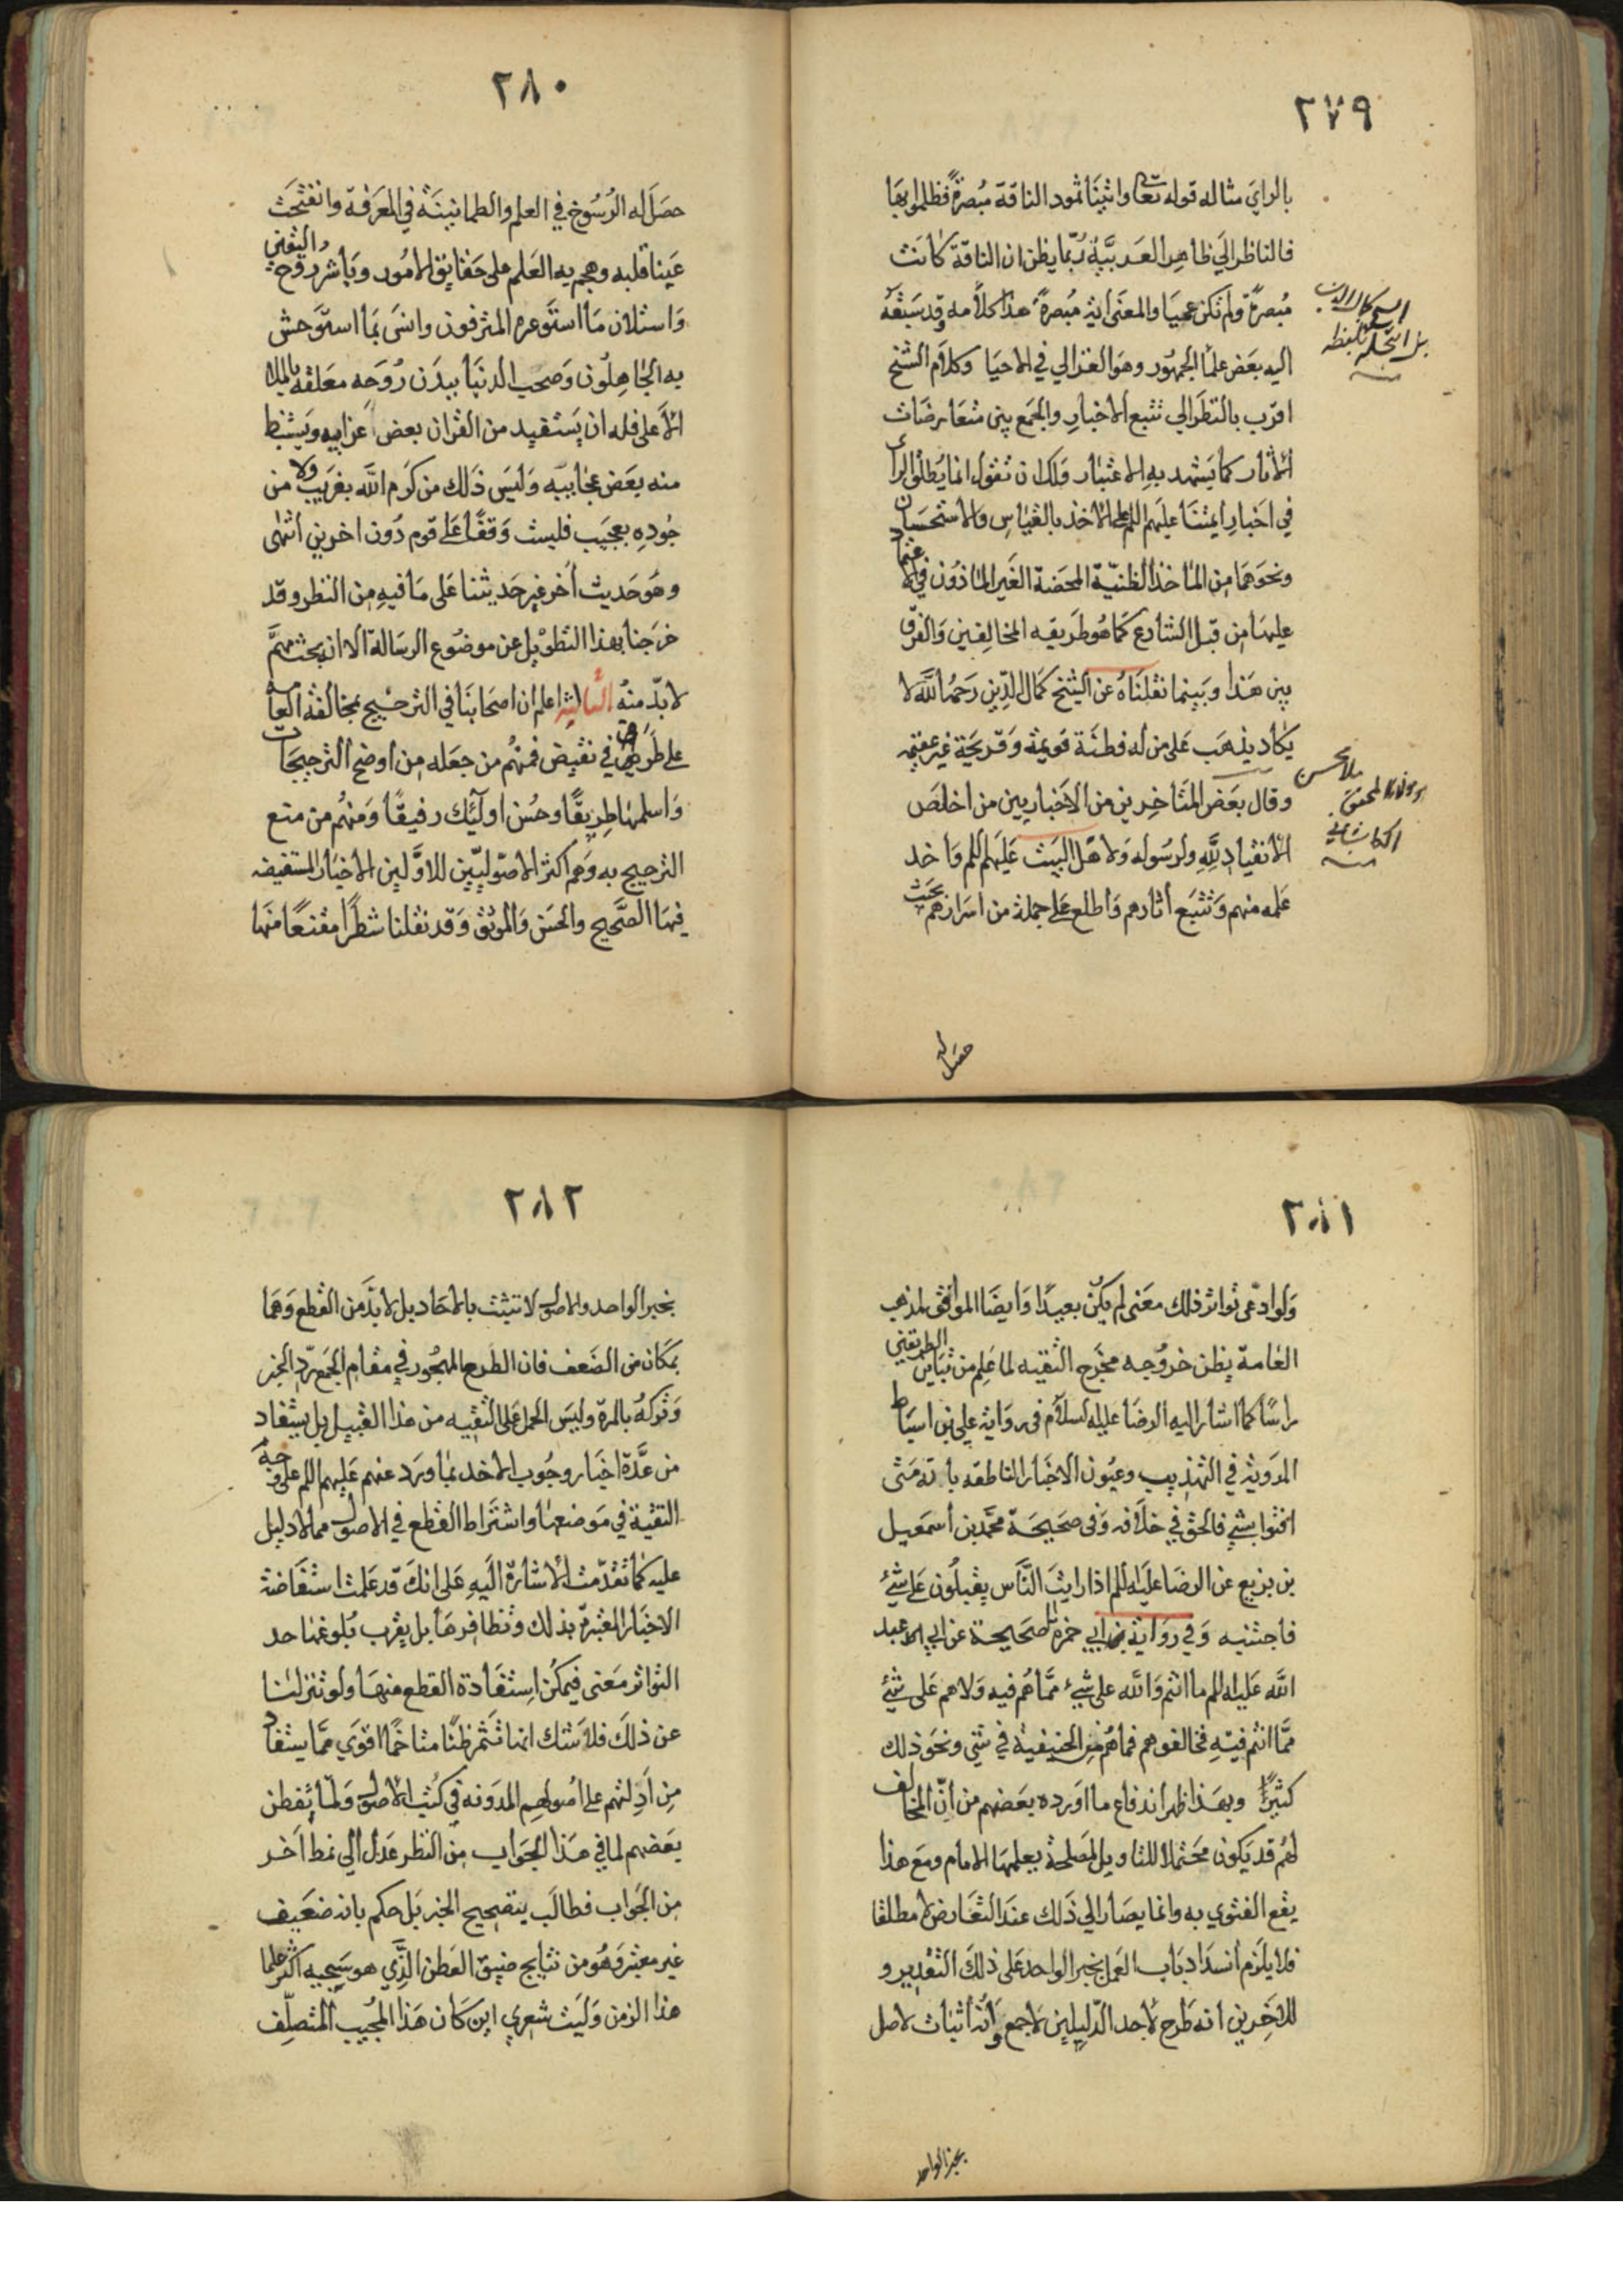 ٢٧٩
بالراي مثاله قوله تعا واتينا ثمود الناقة مبصرة فظلموا بها
فالناظر الي ظاهر العربية ربما يظن ان الناقة كانت
مبصرة ولم تكن عميا والمعنى اية مبصرة هذا كلامه وقد سبقه
اليه بعض علما الجمهور وهو الغزالي في الاحيا وكلام الشيخ
اقرب بالنظر الي تتبع الاخبار والجمع بين متعارضات
الاثار كما يشهد به الاعتبار ولك ان تقول انما يطلق الرأي
في اخبار ايمتنا عليهم اللم على الاخذ بالقياس والاستحسان
ونحوهما من الماخذ الظنية المحضة الغير الماذون في الاعتماد
عليها من قبل الشارع كما هو طريقه المخالفين والفرق
بين هذا وبينما نقلناه عن الشيخ كمال الدين رحمه الله لا
يكاد يذهب على من له فطنة قويمة وقريحة غير عقيمه
وقال بعض المتاخرين من الاخباريين من اخلص
الانقياد لله ولرسوله ولاهل البيت عليهم اللم واخذ
علمه منهم وتتبع اثارهم واطلع على جملة من اسرارهم بحيث
مولانا المحقق ملا محسن
الكاشاني
حصل له
٢٨٠
حصل له الرسوخ في العلم والطمانينة في المعرفة وانفتحت
عينا قلبه وهجم به العلم على حقايق الامور وباشر روح اليقين
واستلان ما استوعره المترفون وانسى بما استوحش
به الجاهلون وصحب الدنيا ببدن روحه معلقه بالملا
الاعلى فله ان يستفيد من القران بعض غرايبه ويستنبط
منه بعض عجايبه وليس ذلك من كرم الله بغريب ولا من
جوده بعجيب فليست وقفا على قوم دون اخرين انتهى
وهو حديث اخر غير حديثنا على ما فيه من النظر وقد
خرجنا بهذا التطويل عن موضوع الرسالة الا انه بحث مهم
لا بد منه الثالثه اعلم ان اصحابنا في الترجيح بمخالفة العامه
على طرفي نقيض فمنهم من جعله من اوضح الترجيحات
واسلمها طريقا وحسن اولئك رفيقا ومنهم من منع
الترجيح به وهم اكثر الاصوليين للاولين الاخبار المستفيضه
فيها الصحيح والحسن والموثق وقد نقلنا شطرا مقنعا منها
٢٨١
ولو ادعى تواتر ذلك معنى لم يكن بعيدا وايضا الموافق لمذهب
العامة يظن خروجه مخرج التقيه لما علم من تباين الطريقتين
راسا كما اشار اليه الرضا عليه السلام في رواية علي بن اسباط
المروية في التهذيب وعيون الاخبار الناطقه بانه متى
افتوا بشي فالحق في خلافه وفي صحيحة محمد بن اسمعيل
بن بزيع عن الرضا عليه اللم اذا رايت الناس يقبلون على شئ
فاجتنبه وفي رواية ابي حمزه الصحيحة عن ابي عبد
الله عليه اللم ما انتم والله على شئ مما هم فيه ولا هم على شئ
مما انتم فيه فخالفوهم فما هم من الحنيفية في شي ونحو ذلك
كثير وبهذا ظهر اندفاع ما اورده بعضهم من ان المخالف
لهم قد يكون محتملا للتاويل لمصلحة يعلمها الامام ومع هذا
يقع الفتوي به وانما يصار الي ذلك عند التعارض لا مطلقا
فلا يلزم انسداد باب العمل بخبر الواحد على ذلك التقدير و
للاخرين انه طرح لاحد الدليلين لا جمع وانه اثبات لاصل
بخبر الواحد
٢٨٢
بخبر الواحد والاصول لا تثبت بالاحاد بل لا بد من القطع وهما
بمكان من الضعف فان الطرح المهجور في مقام الجمع رد الخبر
وتركه بالمرة وليس الحمل على التقيه من هذا القبيل بل يستفاد
من عدة اخبار وجوب الاخذ بما ورد عنهم عليهم اللم على وجه
التقية في موضعها واشتراط القطع في الاصول مما لا دليل
عليه كما تقدمت الاشارة اليه على انك قد علمت استفاضة
الاخبار المعتبرة بذلك وتظافرها بل يقرب بلوغها حد
التواتر معنى فيمكن استفادة القطع منها ولو تنزلنا
عن ذلك فلا شك انها تثمر ظنا متاخما اقوي مما يستفاد
من ادلتهم على اصولهم المدونه في كتب الاصول ولما يفطن
بعضهم لما في هذا الجواب من النظر عدل الي نمط اخر
من الجواب فطالب بتصحيح الخبر بل حكم بانه ضعيف
غير معتبر وهو من نتايج ضيق العطن الذي هو سجيه اكثر علما
هذا الزمن وليت شعري اين كان هذا المجيب المتصلف